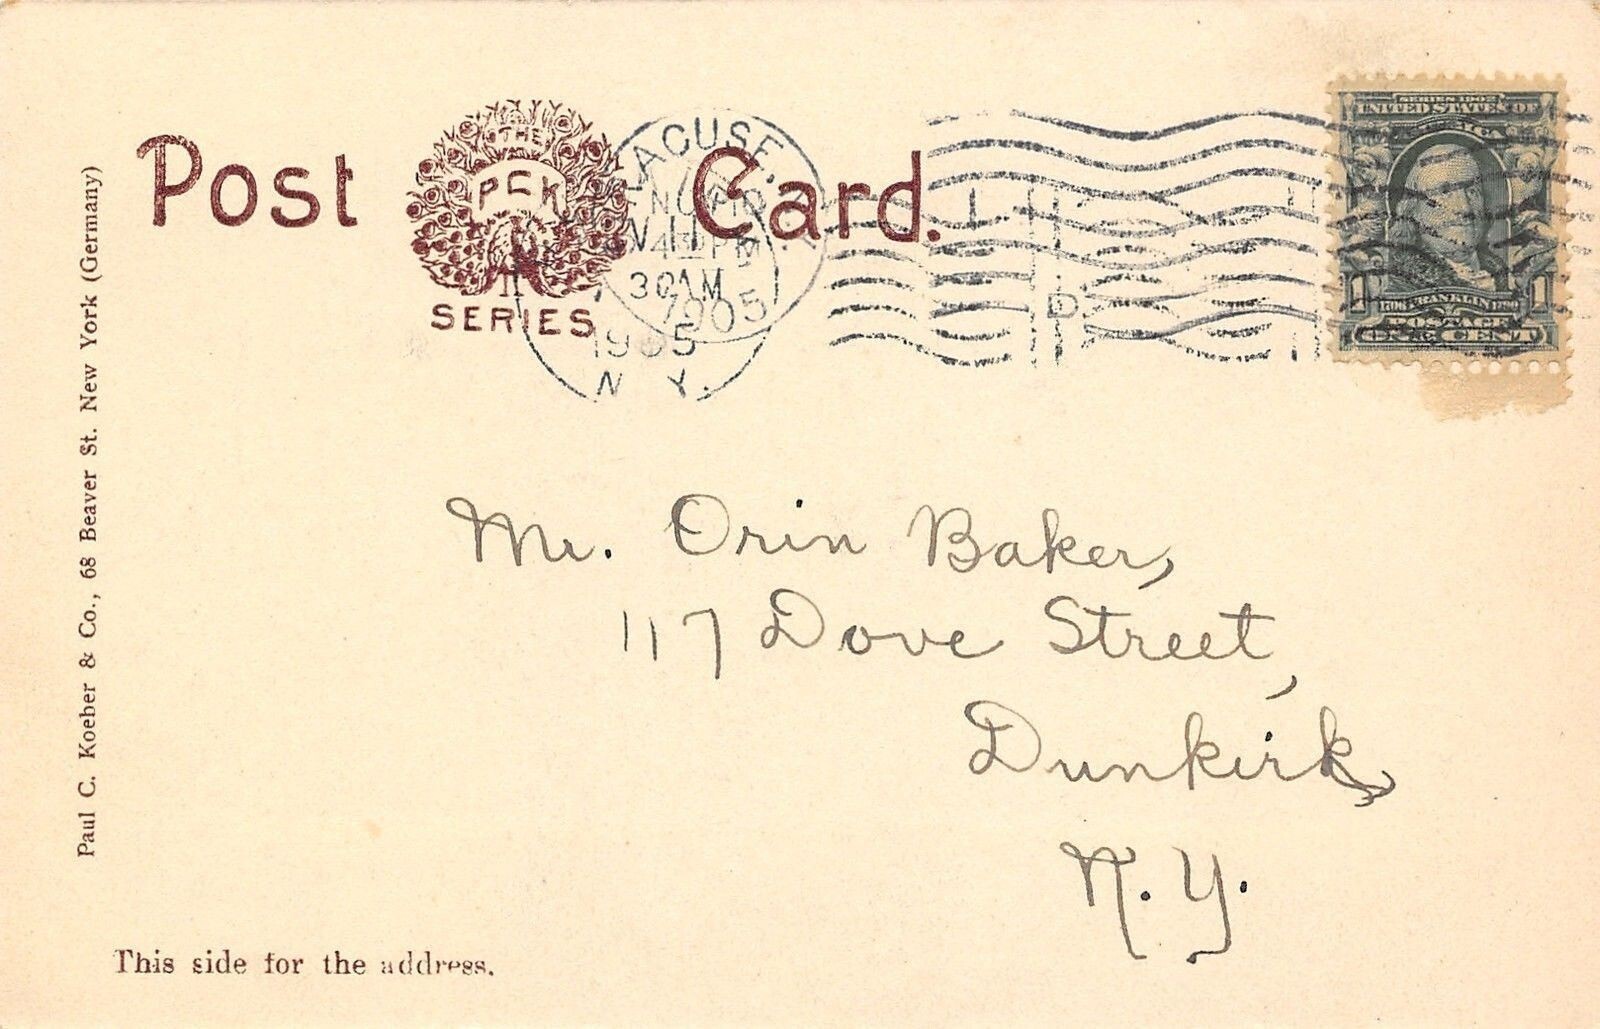 Post Card.
THE
PCK
SERIES
ACUSE,
4 30 PM
1905
3 AM
1905
N. Y.
D
SERIES 1902
UNITED STATES OF
AMERICA
1 1
FRANKLIN
POSTAGE
ONE CENT
Paul C. Koeber & Co., 68 Beaver St. New York (Germany)
Mr. Orin Baker,
117 Dove Street,
Dunkirk,
N. Y.
This side for the address.